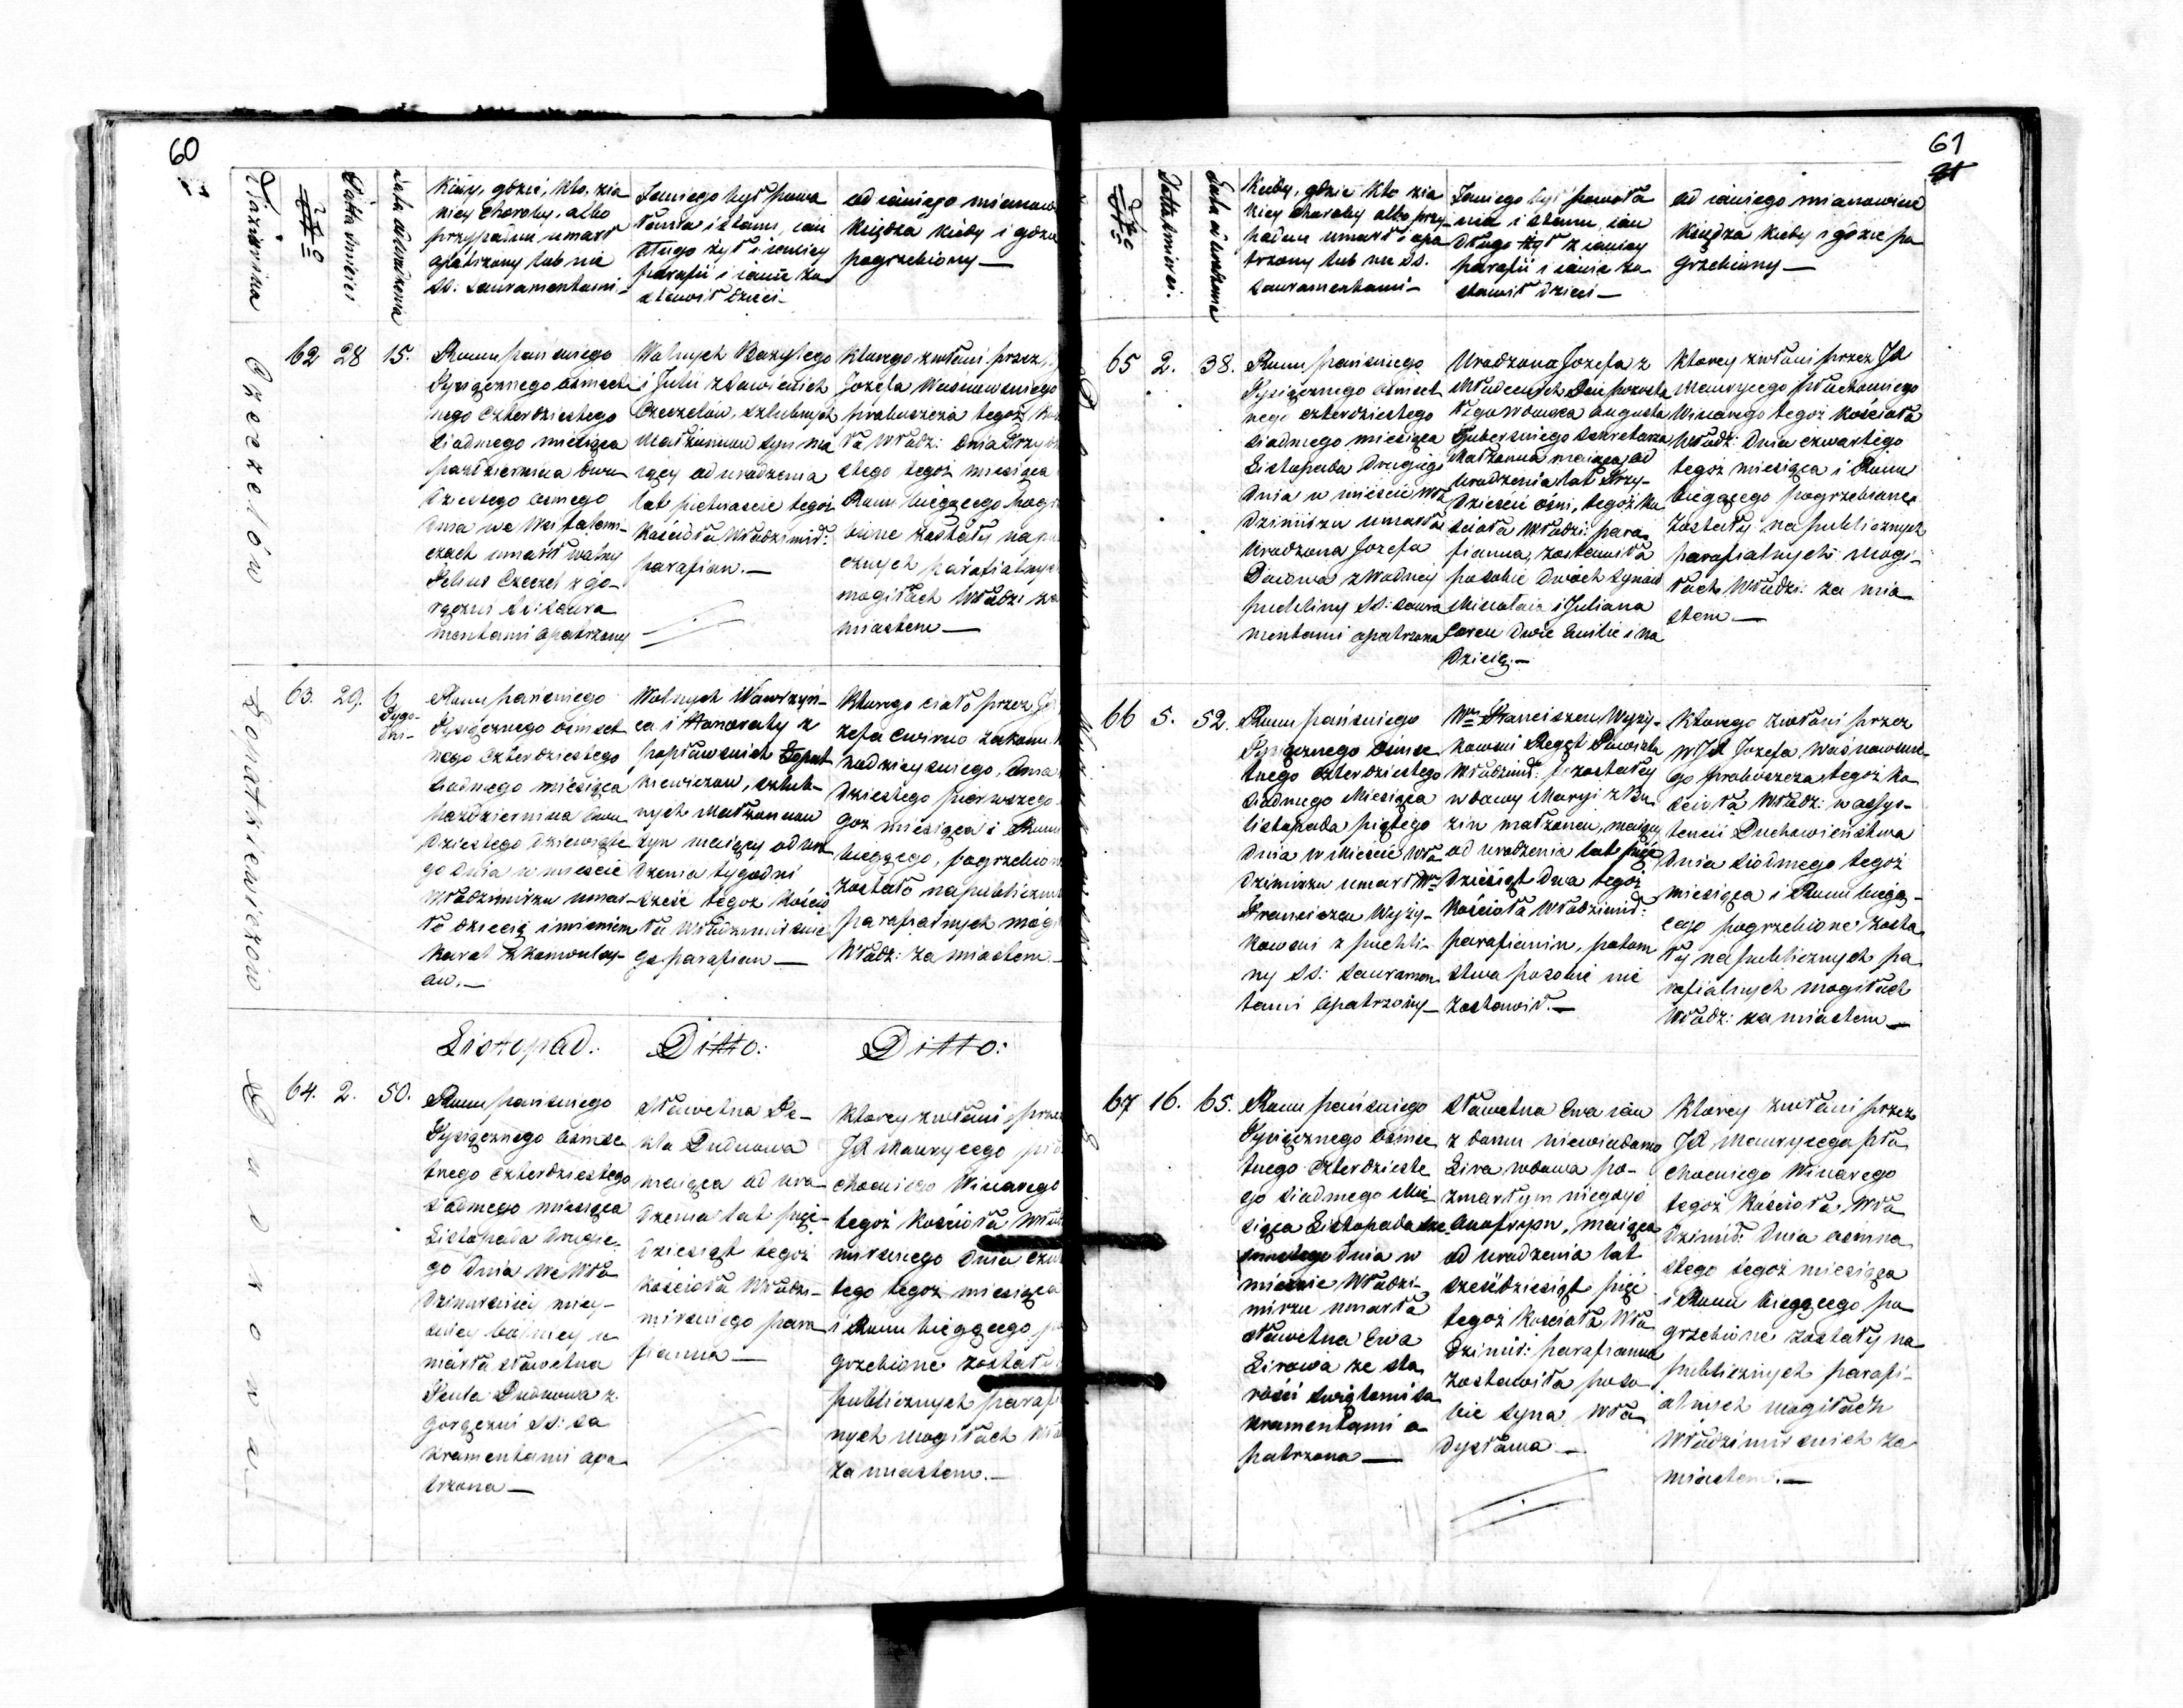 60
Nazwiska
No
Datta śmierci
Lata od urodzenia
Kiedy, gdzie, kto, z ja
kiey choroby, albo
przypadku umarł
opatrzony lub nie
SS: Sakramentami
Jakiego był powo
łania i stanu, jak
długo żył z jakiey
parafii i jakie zo
stawił dzieci
od jakiego mianow
Księdza kiedy i gdzie
pogrzebiony —
Czeczelów
62 28 15.
Roku pańskiego
Tysiącznego ośmset
nego czterdziestego
siodmego miesiąca
października dwu
dziestego osmego
dnia we Wsi
czach umarł wolny
Feliks Czeczel z go-
rączki SS: Sakra
mentami opatrzony
Wolnych Bazylego
i Julii
Czeczelów, szlubnych
Małżonków syn ma
jący od urodzenia
lat pietnascie tegoż
Kościoła Włodzimir:
parafian. —
Ktorego zwłoki przez
Jozefa Waśniewskiego
proboszcza tegoż Ko
ła Włodz: dnia trzydz
stego tegoż miesiąca
Roku bieżącego pogr
bione zostały na pu
cznych parafialnyc
mogiłach Włodzi za
miastem —
Łopatkiewiczów
63. 29. 6
Tygo-
dni-
Roku pańskiego
Tysiącznego ośmset
nego czterdziestego
siodmego miesiąca
października dwu
dziestego dziewiąte
go dnia w mieście
Włodzimirzu umar-
ło dziecię imieniem
Karol z konwulsy-
ów. —
Wolnych Wawrzyń-
ca i Honoraty z
Popławskich Łopat
kiewiczow, szlub-
nych Małżonkow
syn maiący od uro
dzenia tygodni
sześć tegoż Kościo
ła Włodzimirskie
go parafian —
Ktorego ciało przez Jo
zefa Cwirko zakonu
dziestego pierwszego
goż miesiąca i Roku
bieżącego, pogrzebion
zostało na publiczn
parafialnych mogi
Włodz: za miastem —
Listopad: Ditto: Ditto:
Dudkowa
64. 2. 50.
Roku pańskiego
Tysiącznego ośmse
tnego czterdziestego
siodmego miesiąca
Listopada drugie
go dnia we Wło
dzimirskiey miey-
skiey u
marła sławetna
Tekla Dudkowa z
gorączki SS: Sa
kramentami opa
trzona —
Sławetna Te-
kla Dudkowa
maiąca od uro
dzenia lat pięć-
dziesiąt tegoż
Kościoła Włodzi-
mirskiego para
fianka —
Ktorey zwłoki prze
JX Maurycego
Wikarego
tegoż Kościoła Włodz
mirskiego dnia czw
tego tegoż miesiąca
i Roku bieżącego po
grzebione zostały
publicznych parafi
nych mogiłach Wło
za miastem. —
61
No
Datta śmierci.
Lata od urodzenia
Kiedy, gdzie kto z ja
kiey choroby albo przy-
padku umarł i opa
trzony lub nie SS.
Sakramentami —
Jakiego był powoła
nia i stanu, jak
długo żył z jakiey
parafii i jakie zo
stawił dzieci —
od jakiego mianowicie
Księdza kiedy i gdzie po
grzebiony —
65 2. 38.
Roku pańskiego
Tysiącznego ośmset
nego czterdziestego
siodmego miesiąca
Listopada drugiego
dnia w mieście Wło
dzimirzu umarła
Urodzona Jozefa
z wodney
puchliny SS: Sakra
mentami opatrzona
Urodzona Jozefa z
Augusta
Guberskiego Sekretarza
Małżonka maiąca od
urodzenia lat trzy-
dzieści ośm, tegoż Ko
ścioła Włodzi: para
fianka, zostawiła
po sobie dwóch synów
Mikołaia i Juliana
Corek dwie Emilie i Na
dzieię. —
Ktorey zwłoki przez JX
Maurycego
Wikarego tegoż Kościoła
Włodz: dnia czwartego
tegoż miesiąca i Roku
bieżącego pogrzebione
zostały na publicznych
parafialnych mogi-
łach Włodzi: za mia
stem —
66 5. 52.
Roku pańskiego
Tysiącznego ośmse
tnego czterdziestego
siodmego Miesiąca
listopada piątego
dnia w Mieście Wło
dzimirzu umarł Wny
Franciszek Wyży-
kowski z puchli-
ny SS: Sakramen
tami opatrzony —
Wny Franciszek Wyży-
kowski Regzt Powiatu
Włodzimir: pozostałey
wdowy Maryi z Bu
zin małżonek, maiący
od urodzenia lat pięć
dziesiąt dwa tegoż
Kościoła Włodzimir:
parafianin, potom
stwa po sobie nie
zostawił. —
Ktorego zwłoki przez
WJX Jozefa Waśniewskie
go proboszcza tegoż Ko
ścioła Włodz: w assys-
tencii Duchowieństwa
dnia siodmego tegoż
miesiąca i Roku bieżą-
cego pogrzebione zosta
ły na publicznych pa
rafialnych mogiłach
Włodz: za miastem —
67 16. 65.
Roku pańskiego
Tysiącznego ośmse
tnego czterdzieste
go siodmego Mie
siąca Listopada sze
snastego dnia w
mieście Włodzi-
mirzu umarła
sławetna Ewa
Lirowa ze sta
rości świętemi sa
kramentami o
patrzona —
Sławetna Ewa jak
z domu niewiadomo
Lira wdowa po
zmarłym niegdyś
Onofrym, maiąca
od urodzenia lat
sześćdziesiąt pięć
tegoż Kościoła Wło
dzimir: parafianka
zostawiła poso
bie syna Wła
dysława —
Ktorey zwłoki przez
JX Maurycego
Wikarego
tegoż Kościoła Wło
dzimir: dnia osmna
stego tegoż miesiąca
i Roku bieżącego po
grzebione zostały na
publicznych parafi-
alnych mogiłach
Włodzimirskich za
miastem. —